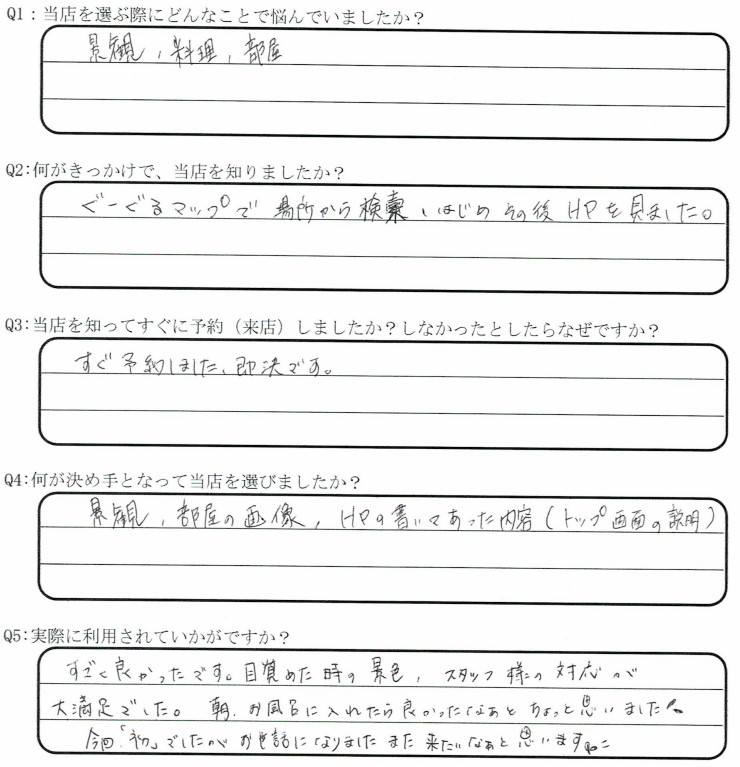 Q1：当店を選ぶ際にどんなことで悩んでいましたか？
景観，料理，部屋
Q2:何がきっかけで、当店を知りましたか？
ぐーぐるマップで 場所から検索、はじめ その後 HPを見ました。
Q3:当店を知ってすぐに予約（来店）しましたか？しなかったとしたらなぜですか？
すぐ予約しました、即決です。
Q4:何が決め手となって当店を選びましたか？
景観，部屋の画像，HPの書いてあった内容（トップ画面の説明）
Q5:実際に利用されていかがですか？
すごく良かったです。目覚めた時の景色，スタッフ様の対応が
大満足でした。朝，お風呂に入れたら良かったなぁと ちょっと思いました
今回「初」でしたが お世話になりました また 来たいなぁと思います